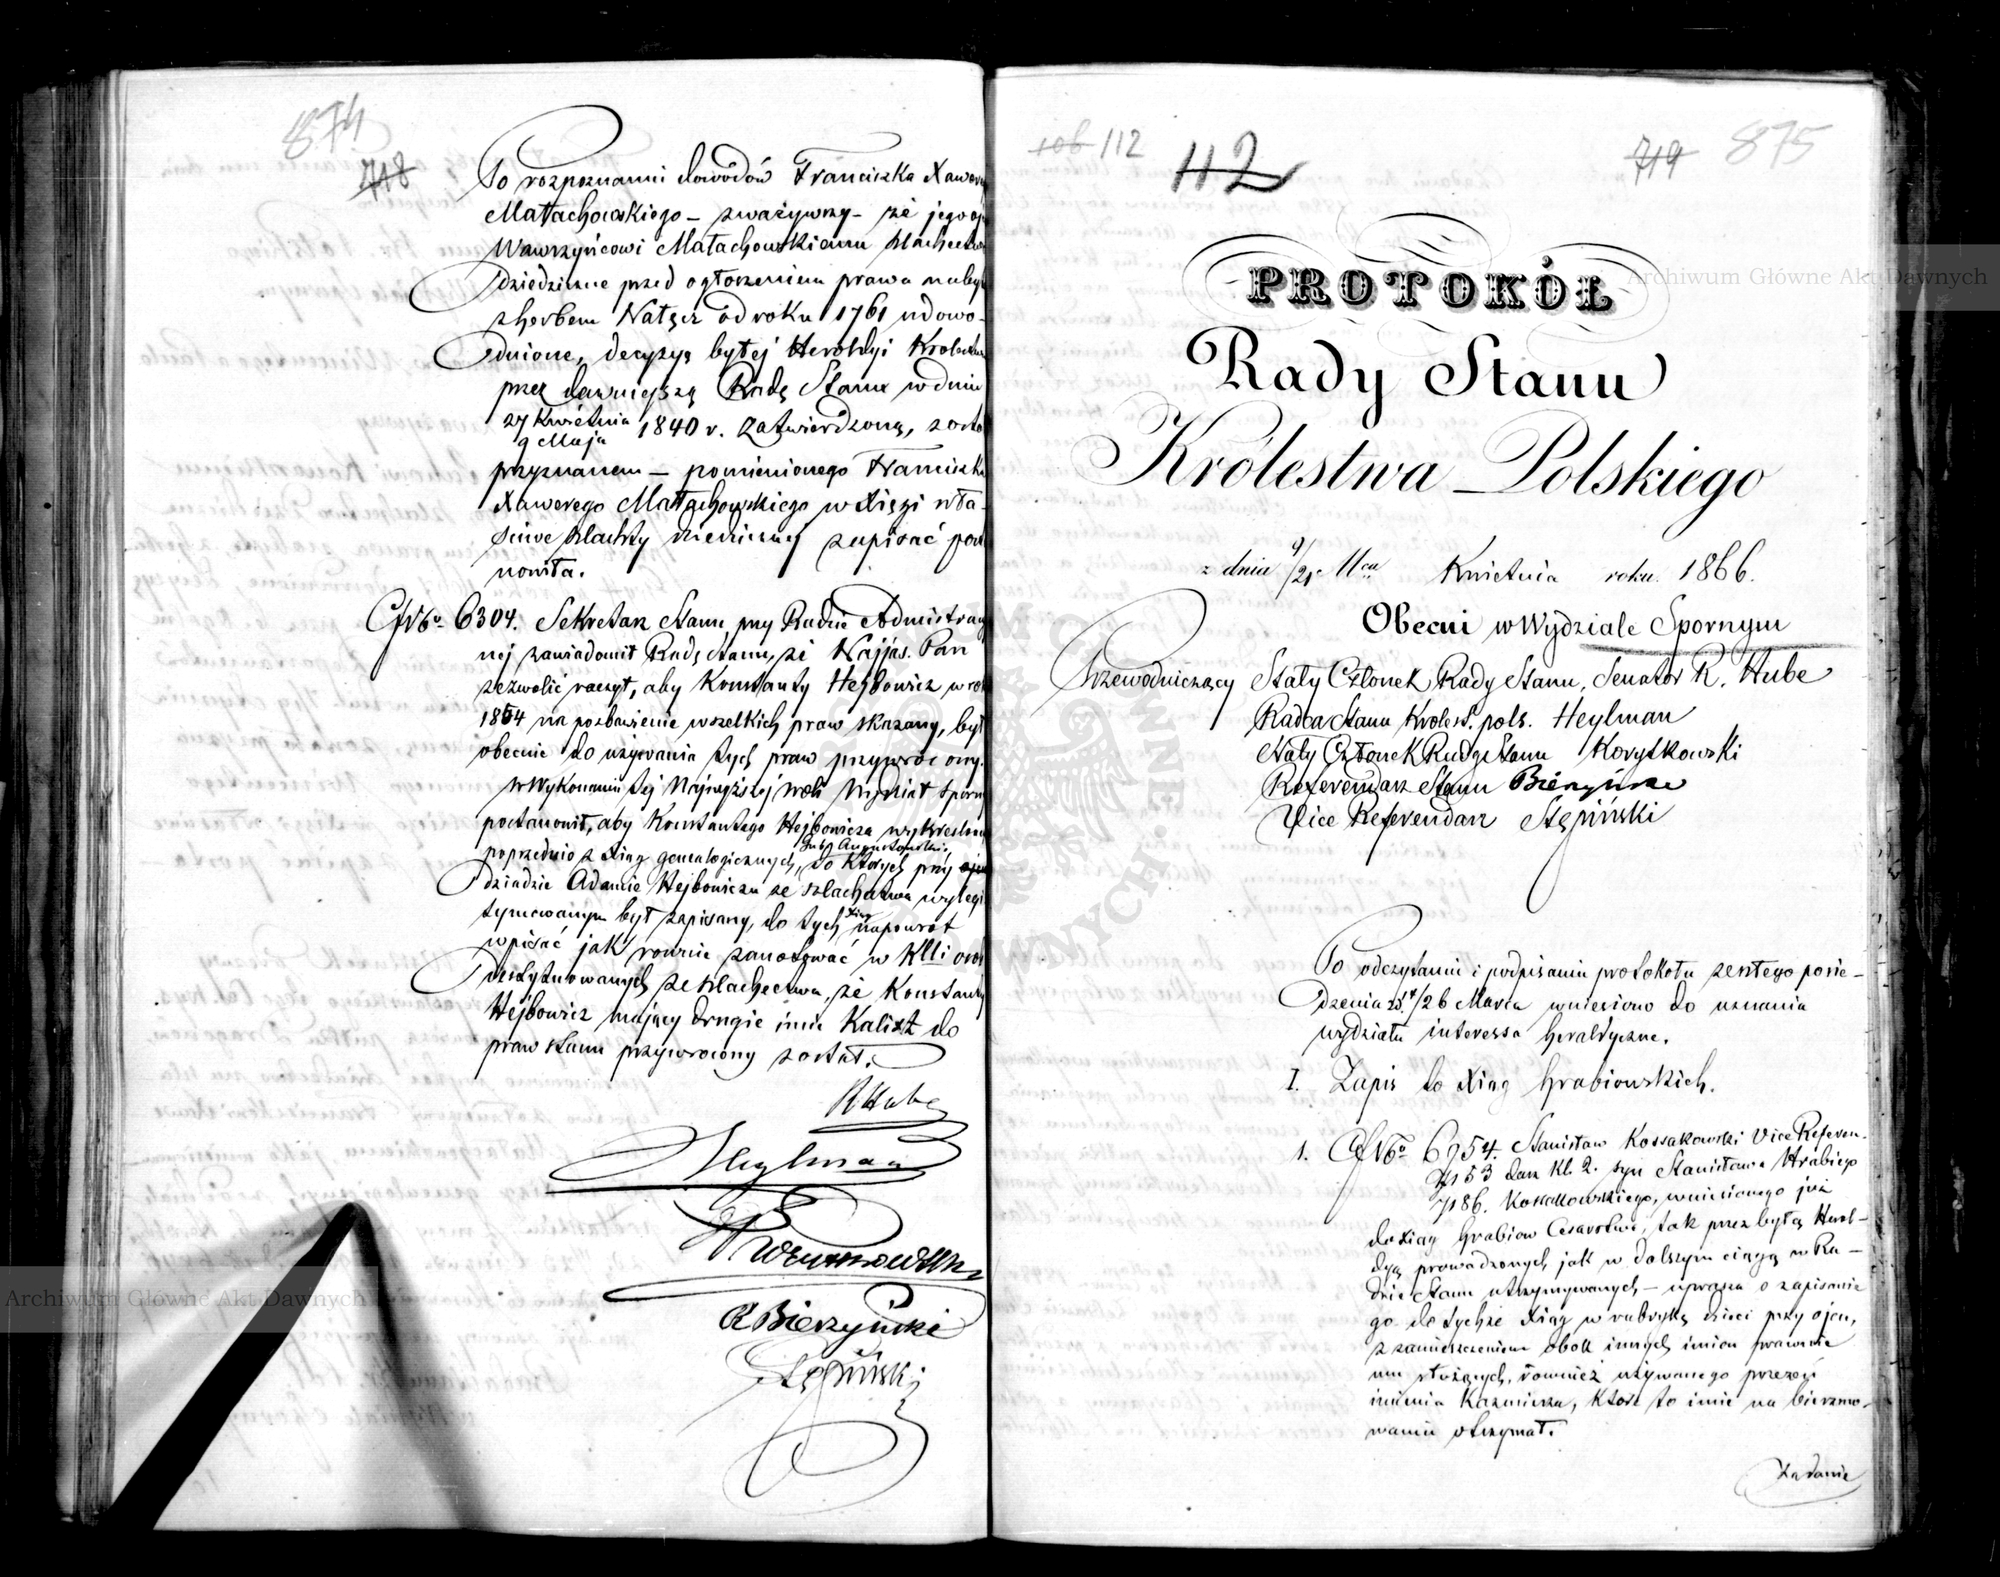 874
718
Po rozpoznaniu dowodów Franciszka Xawere
Małachowskiego – zważywszy – że jego oj
Wawrzyńcowi Małachowskiemu szlachectwo
dziedziczne przed ogłoszeniem prawa nabyt
z herbem Nałęcz od roku 1761 udowo-
dnione, decyzyą byłej Heroldyi Królestwa
przez dawniejszą Radę Stanu w dniu
27 Kwietnia
9 Maja 1840 r. zatwierdzoną, zosta
przyznanem – pomienionego Franciszka
Xawerego Małachowskiego w Xięgi wła-
ściwe szlachty dziedzicznej zapisać posta
nowiła.
6304. Sekretarz Stanu przy Radzie Admistracyj
nej zawiadomił Radę Stanu, że Najjaś. Pan
zezwolić raczył, aby Konstanty Hejbowicz w rok
1854 na pozbawienie wszelkich praw skazany, był
obecnie do używania tych praw przywrócony.
W wykonaniu tej Najwyższej woli Wydział Sporny
postanowił, aby Konstantego Hejbowicza wykreślone
poprzednio z Xiąg genealogicznych, Gub. Augustowskiej, do których przy
dziadzie Adamie Hejbowiczu ze szlachectwa wylegi
tymowanym był zapisany, do tych Xiąg napowrót
wpisać jak rownie zanotować w osób
destytuowanych ze szlachectwa, że Konstanty
Hejbowicz mający drugie imie Kalixt do
praw stanu przywrócony został.
RHube
Heylman
RBierzyński
Stępiński
106 112
112
719 875
PROTOKÓŁ
Rady Stanu
Królestwa Polskiego
z dnia 9/21 Mca Kwietnia roku 1866.
Obecni w Wydziale Spornym
Przewodniczący Stały Członek Rady Stanu, Senator R. Hube
Radca Stanu Królest. pols. Heylman
Stały Członek Rady Stanu Korytkowski
Referendarz Stanu Bierzyński
Vice Referendarz Stępiński
Po odczytaniu i podpisaniu protokołu zeszłego posie-
dzenia z d. 14/26 Marca wniesiono do uznania
wydziału interessa heraldyczne.
I. Zapis do Xiąg Hrabiowskich.
1. 6954. Stanisław Kossakowski Vice Referen-
7153 darz kl. 2. syn Stanisława Hrabiego
7186. Kossakowskiego, wniesionego już
do Xiąg Hrabiów Cesarstwa, tak przez byłą Herol-
dyą prowadzonych jak w dalszym ciągu w Ra-
dzie Stanu utrzymywanych – uprasza o zapisanie
go do tychże Xiąg w rubrykę dzieci przy ojcu,
z zamieszczeniem obok innych imion prawnie
mu służących, również używanego przezeń
imienia Kazimierza, które to imie na bierzmo-
waniu otrzymał.
Żądanie
Archiwum Główne Akt Dawnych
Archiwum Główne Akt Dawnych